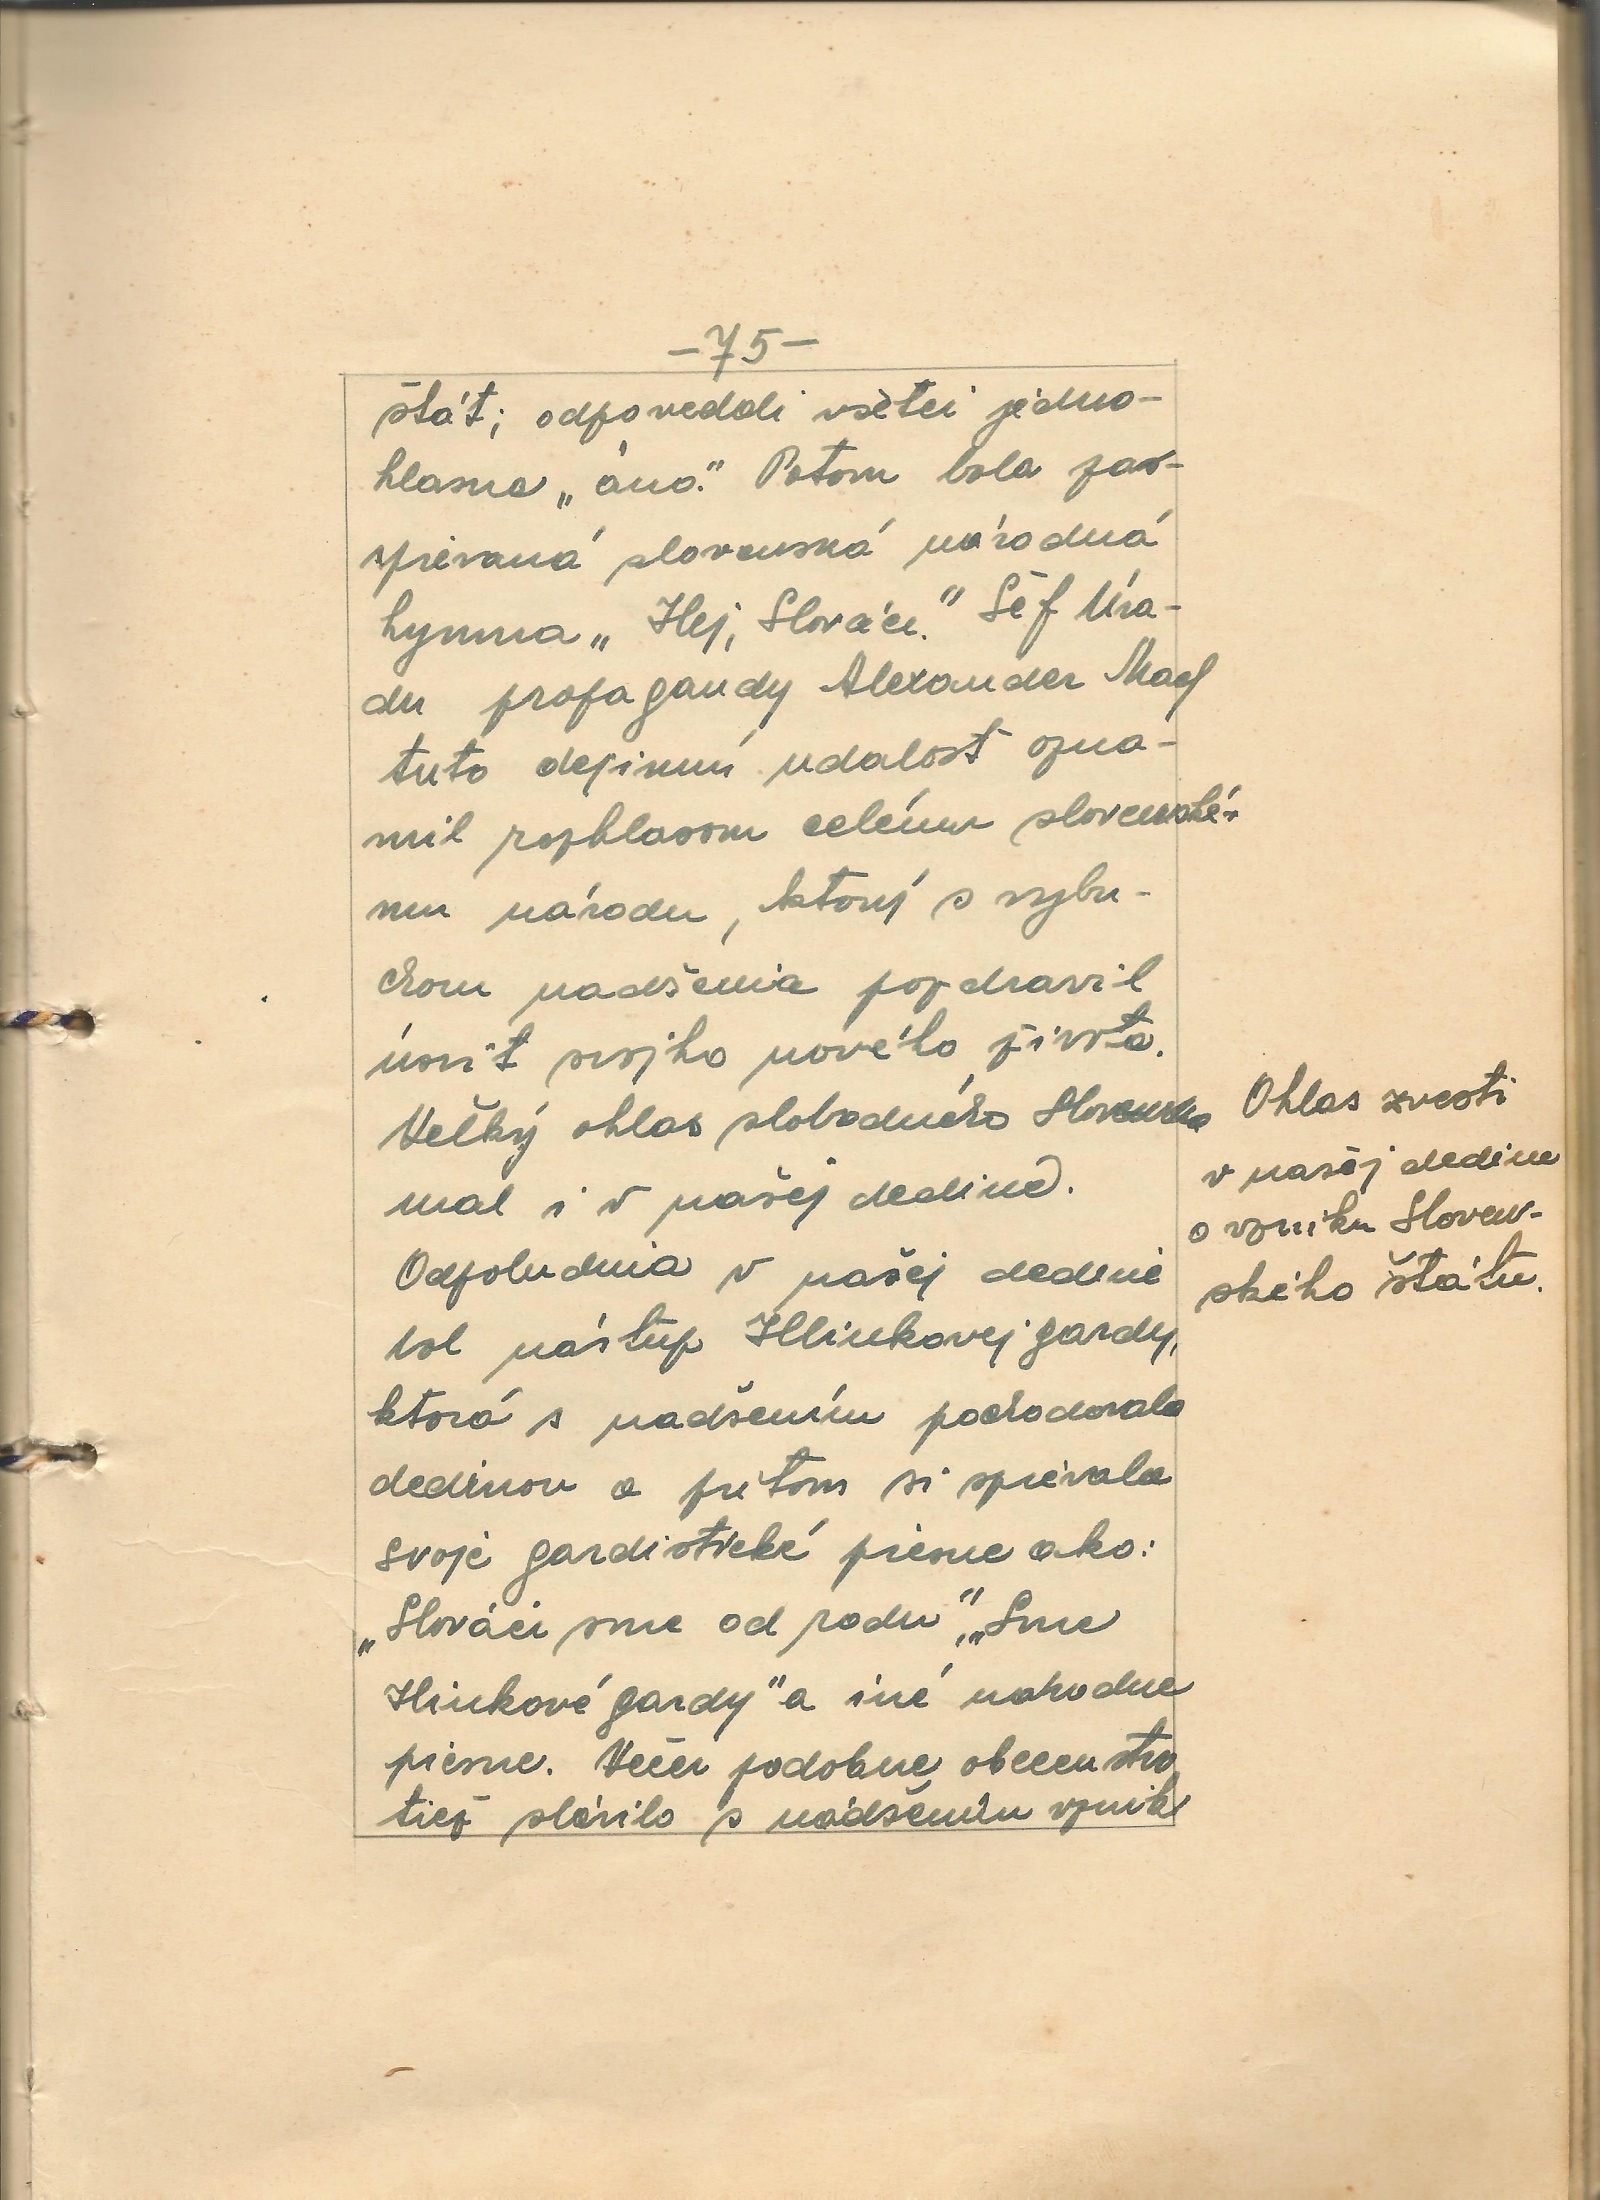 -75-
štát; odpovedali všetci jedno-
hlasne „áno." Potom bola zas-
spievaná slovenská národná
hymna „Hej, Slováci." Šéf Úra-
du propagandy Alexander Mach
túto dejinnú udalosť ozná-
mil rozhlasom celému slovenské-
mu národu, ktorý s výbu-
chom nadšenia pozdravil
úsvit svojho nového života.
Veľký ohlas slobodného Slovenska
mal i v našej dedine.
Odpoludnia v našej dedine
bol nástup Hlinkovej gardy,
ktorá s nadšením pochodovala
dedinou a pritom si spievala
svoje gardistické piesne ako:
„Slováci sme od rodu", „Sme
Hlinkové gardy" a iné národne
piesne. Večer podobne obecenstvo
tiež slávilo s nadšením vznik
Ohlas zvesti
v našej dedine
o vzniku Sloven-
ského štátu.